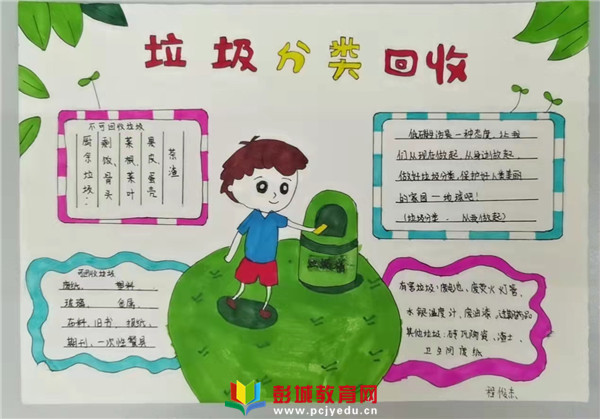 垃圾分类回收
不可回收垃圾
厨余垃圾：
剩饭、骨头
菜根菜叶
果皮、蛋壳
茶渣
低碳生活是一种态度，让我
们从现在做起，从身边做起，
做好垃圾分类，保护好人类美丽
的家园—地球吧！
（垃圾分类、从我做起）
可回收垃圾
废纸、塑料、
玻璃、金属、
布料、旧书、报纸、
期刊、一次性餐具
有害垃圾：废电池、废荧光灯管、
水银温度计、废油漆、过期药品
其他垃圾：砖瓦陶瓷、渣土、
卫生间废纸
彭城教育网
www.pcjyedu.cn